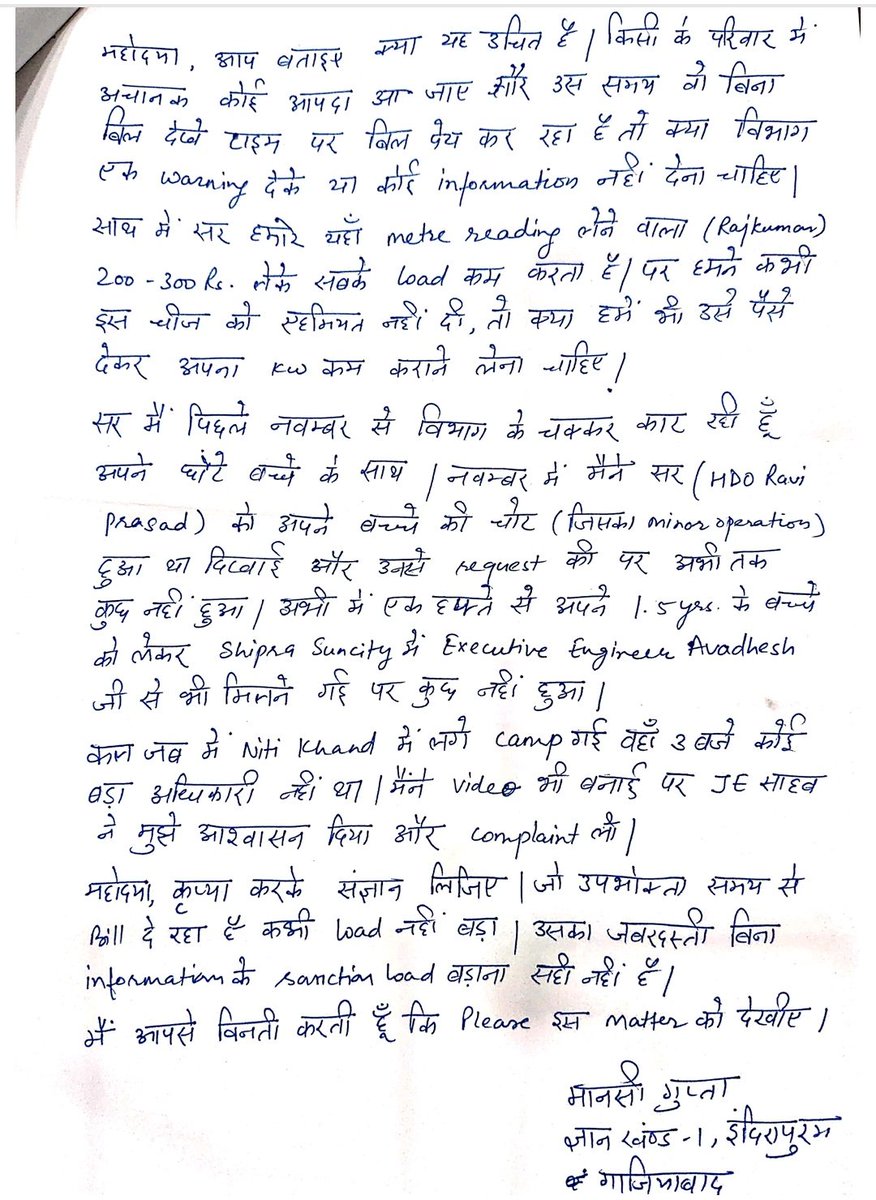 महोदया, आप बताइए क्या यह उचित है। किसी के परिवार में
अचानक कोई आपदा आ जाए और उस समय वो बिना
बिल देखे टाइम पर बिल पेय कर रहा है तो क्या विभाग
एक warning देके या कोई information नहीं देना चाहिए।
साथ में सर हमारे यहाँ metre reading लेने वाला (Rajkumar)
200-300 Rs. लेके सबके load कम करता है। पर हमने कभी
इस चीज को एहमियत नहीं दी, तो क्या हमें भी उसे पैसे
देकर अपना KW कम कराने लेना चाहिए।
सर मैं पिछले नवम्बर से विभाग के चक्कर काट रही हूँ
अपने छोटे बच्चे के साथ। नवम्बर में मैंने सर (HDO Ravi
Prasad) को अपने बच्चे की चोट (जिसका minor operation)
हुआ था दिखाई और उनसे request की पर अभी तक
कुछ नहीं हुआ। अभी में एक हफ्ते से अपने 1.5 yrs. के बच्चे
को लेकर Shipra Suncity में Executive Engineer Avadhesh
जी से भी मिलने गई पर कुछ नहीं हुआ।
कल जब में Niti Khand में लगे camp गई वहाँ 3 बजे कोई
बड़ा अधिकारी नहीं था। मैंने video भी बनाई पर JE साहब
ने मुझे आश्वासन दिया और complaint ली।
महोदया, कृप्या करके संज्ञान लिजिए। जो उपभोक्ता समय से
Bill दे रहा है कभी load नहीं बड़ा। उसका जबरदस्ती बिना
information के sanction load बड़ाना सही नहीं है।
मैं आपसे विनती करती हूँ कि Please इस matter को देखीए।
मानसी गुप्ता
ज्ञान खण्ड-1, इंदिरापुरम
गाजियाबाद